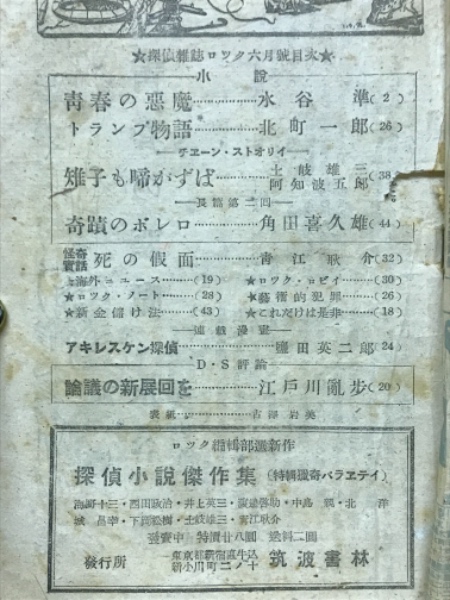 ★探偵雜誌ロック六月號目次★
小說
靑春の惡魔………………水谷準(2)
トランプ物語………………北町一郞(26)
チエーン・ストオリイ
雉子も啼かずば…………土岐雄三
阿知波五郞(38)
長篇第二回
奇蹟のボレロ…………角田喜久雄(44)
怪奇實話 死の假面…………靑江耿介(32)
★海外ニユース……(19)
★ロツク・ロビイ……(30)
★ロツク・ノート……(28)
★藝術的犯罪……(26)
★新金儲け法……(43)
★これだけは是非……(18)
連載漫畫
アキレスケン探偵…………鹽田英二郞(24)
D・S評論
論議の新展回を…………江戶川亂步(20)
表紙………………古澤岩美
ロツク編輯部選新作
探偵小說傑作集(特輯獵奇バラエテイ)
海野十三・西田政治・井上英三・
・中島親・北洋
城昌幸・下
・土岐雄三・靑江耿介
發賣中 特價廿八圓 送料二圓
發行所
東京都新宿區牛込
新小川町二ノ十
筑波書林